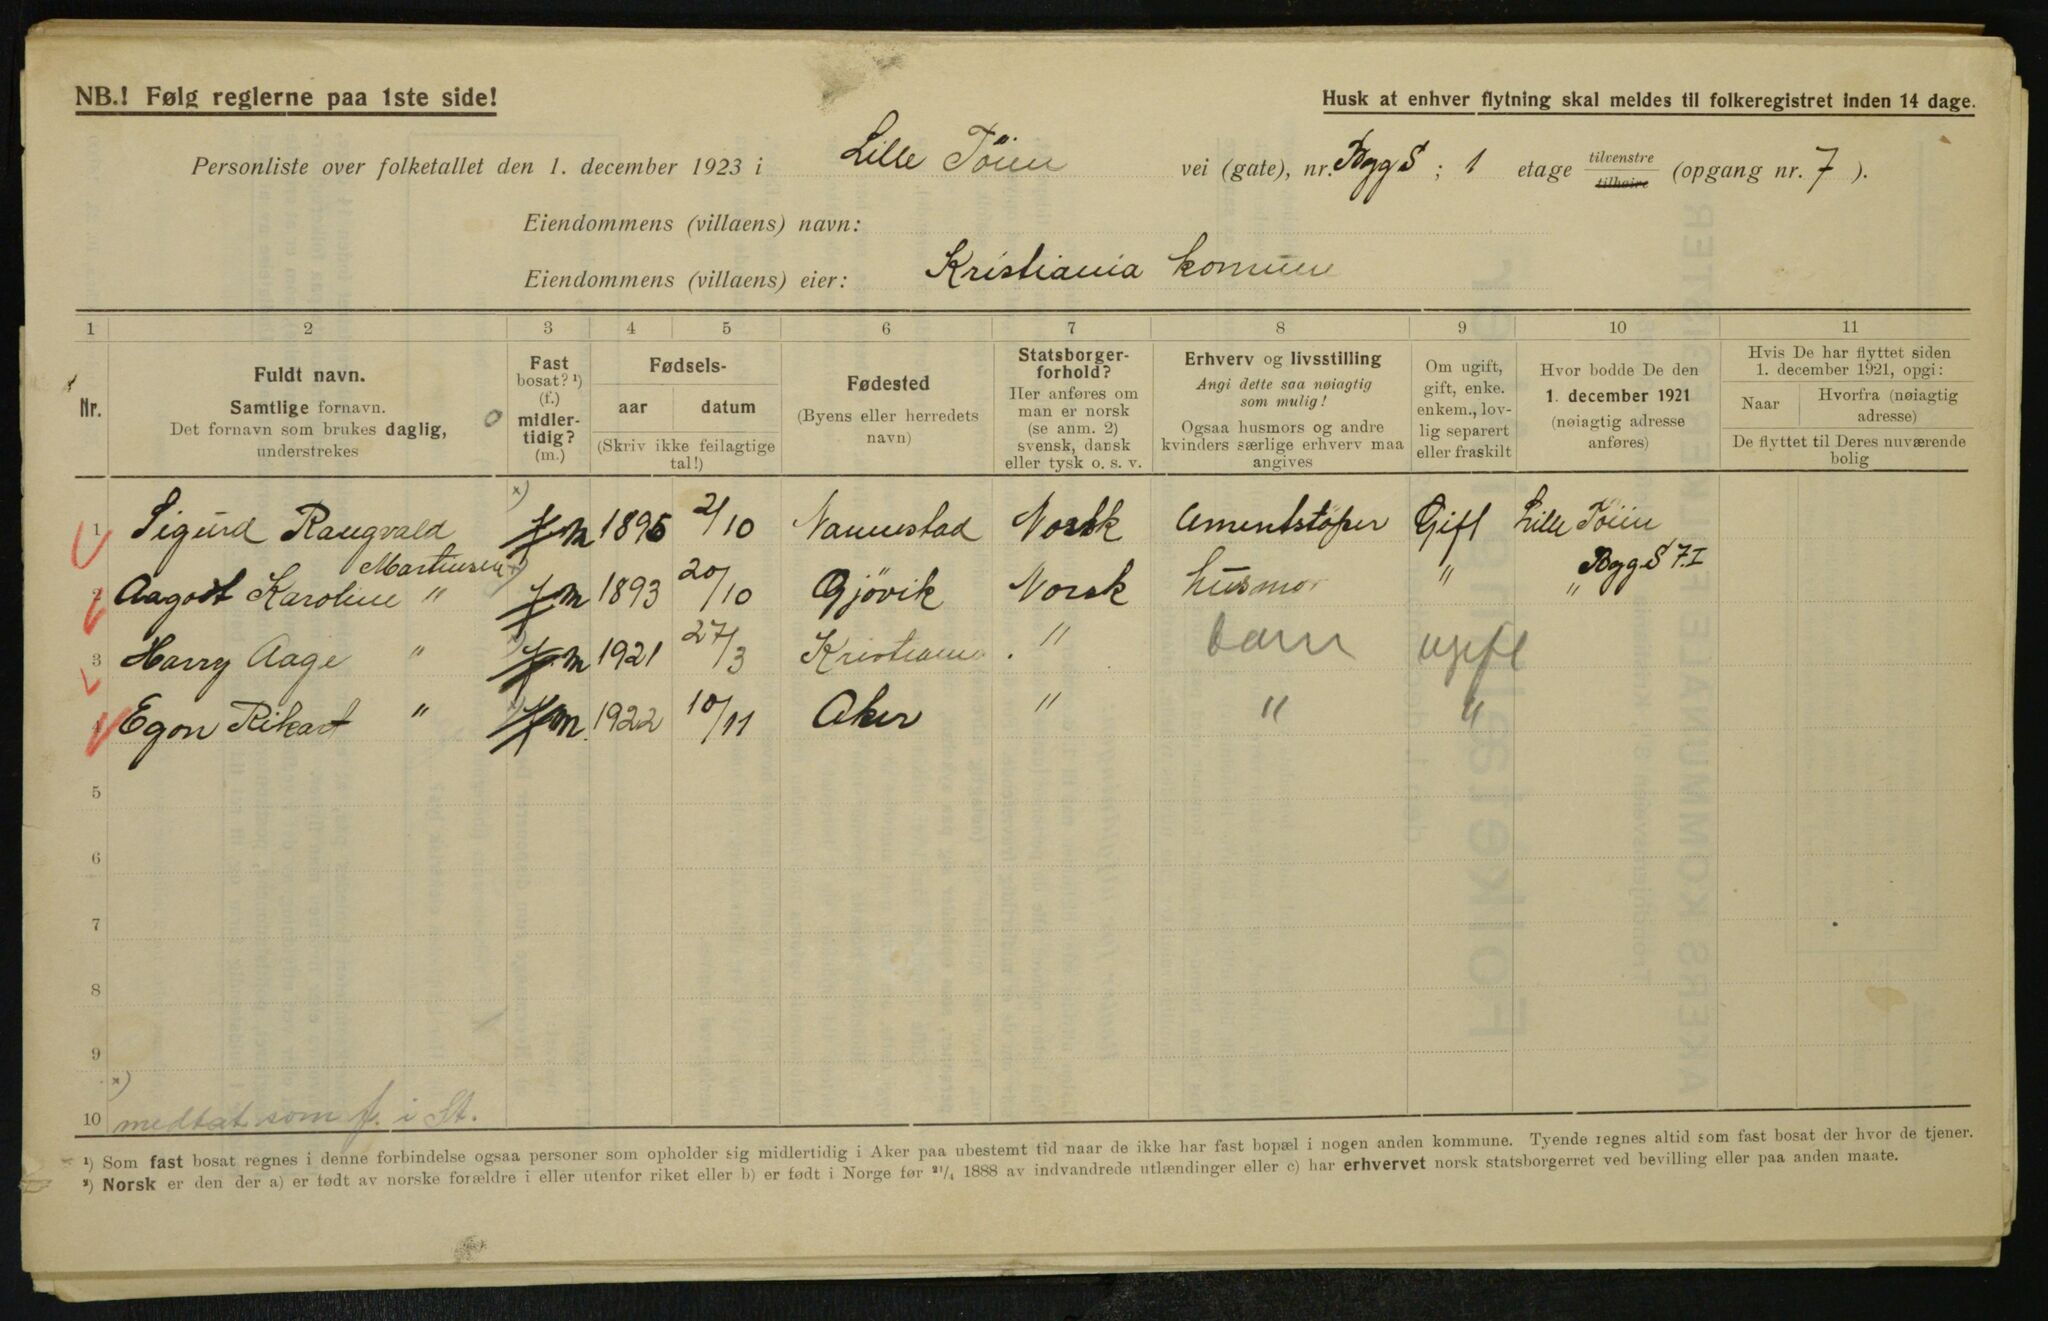 NB.! Følg reglerne paa 1ste side!
Husk at enhver flytning skal meldes til folkeregistret inden 14 dage.
Personliste over folketallet den 1. december 1923 i Lille Töien vei (gate), nr. Bygg S ; 1 etage tilvenstre tilhøire (opgang nr. 7 ).
Eiendommens (villaens) navn:
Eiendommens (villaens) eier: Kristiania komune
1 2 3 4 5 6 7 8 9 10 11
Nr.
Fuldt navn.
Samtlige fornavn.
Det fornavn som brukes daglig,
understrekes
Fast
bosat? ¹)
(f.)
midler-
tidig?
(m.)
Fødsels-
aar datum
(Skriv ikke feilagtige
tal!)
Fødested
(Byens eller herredets
navn)
Statsborger-
forhold?
Her anføres om
man er norsk
(se anm. 2)
svensk, dansk
eller tysk o. s. v.
Erhverv og livsstilling
Angi dette saa nøiagtig
som mulig!
Ogsaa husmors og andre
kvinders særlige erhverv maa
angives
Om ugift,
gift, enke.
enkem., lov-
lig separert
eller fraskilt
Hvor bodde De den
1. december 1921
(nøiagtig adresse
anføres)
Hvis De har flyttet siden
1. december 1921, opgi:
Naar
Hvorfra (nøiagtig
adresse)
De flyttet til Deres nuværende
bolig
1 Sigurd Rangvald Martinsen x) f m 1895 2/10 Nannestad Norsk Cementstöper Gift Lille Töien Bygg S 7.I
2 Aagodt Karoline " f m 1893 20/10 Gjövik Norsk husmor " "
3 Harry Aage " f m 1921 27/3 Kristiania " barn ugift
4 Egon Rikart " f m 1922 10/11 Aker " " "
5
6
7
8
9
x)
10 medtat som f. i St.
¹) Som fast bosat regnes i denne forbindelse ogsaa personer som opholder sig midlertidig i Aker paa ubestemt tid naar de ikke har fast bopæl i nogen anden kommune. Tyende regnes altid som fast bosat der hvor de tjener.
²) Norsk er den der a) er født av norske forældre i eller utenfor riket eller b) er født i Norge før ²¹/₄ 1888 av indvandrede utlændinger eller c) har erhvervet norsk statsborgerret ved bevilling eller paa anden maate.